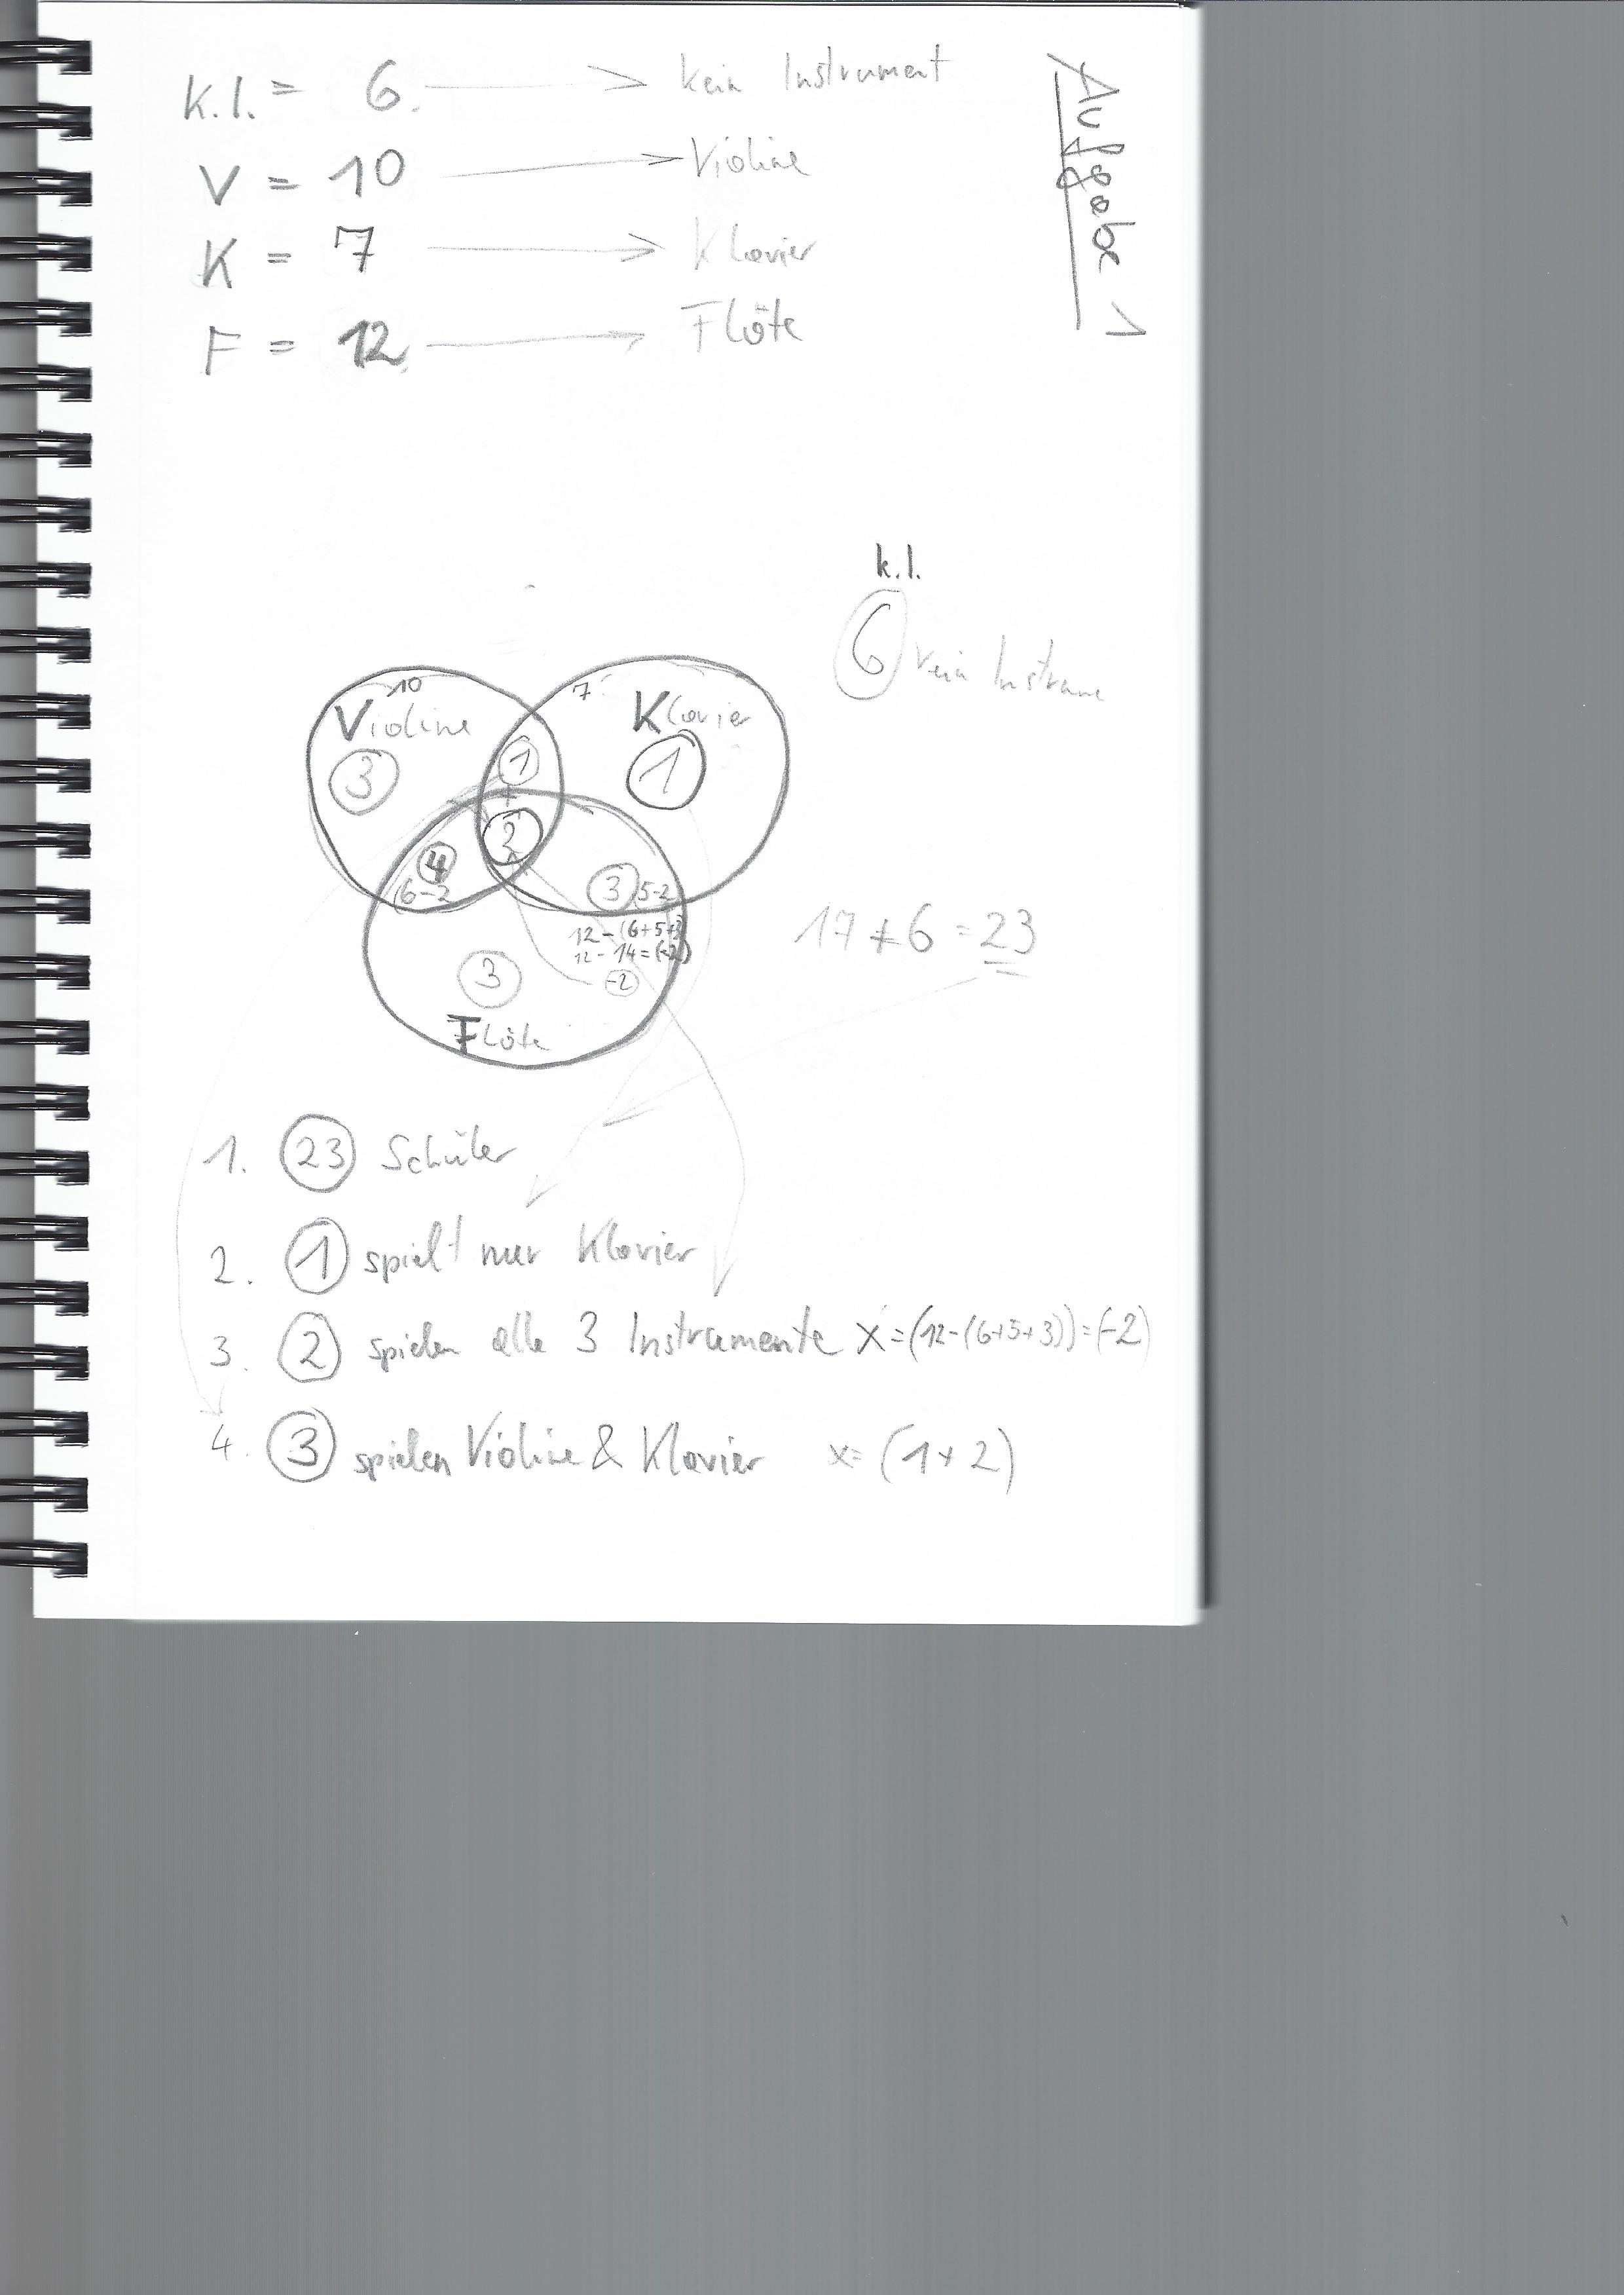 Aufgabe 1
k.I. = 6. → kein Instrument
V = 10 → Violine
K = 7 → Klavier
F = 12 → Flöte
k.I.
6 kein Instrum
10
Violine
3
7
Klavier
1
1
+
2
4
6-2
3 5-2
12-(6+5+3)
12-14=(-2)
-2
3
Flöte
17+6=23
1. 23 Schüler
2. 1 spielt nur Klavier
3. 2 spielen alle 3 Instrumente x=(12-(6+5+3))=(-2)
4. 3 spielen Violine & Klavier x=(1+2)